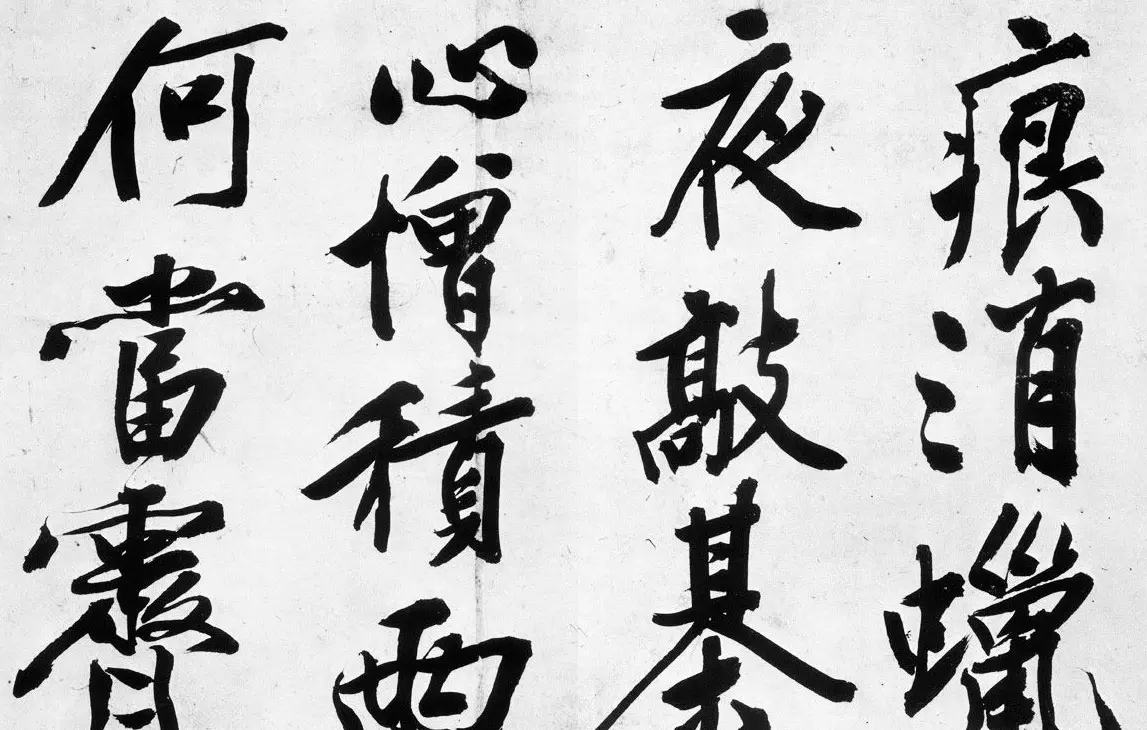 痕消蠟
夜敲棊
心憎積雨
何當霽